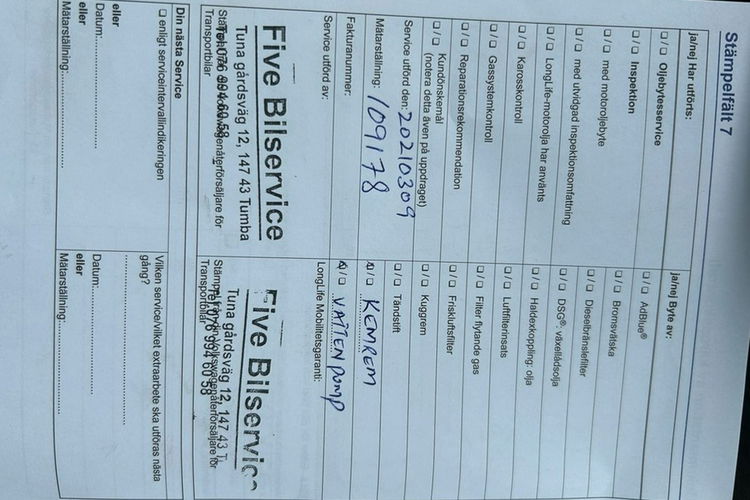 Stämpelfält 7
ja/nej Har utförts:
ja/nej Byte av:
☐ / ☐ Oljebytesservice
☐ / ☐ AdBlue®
☐ / ☐ Inspektion
☐ / ☐ Bromsvätska
☐ / ☐ med motoroljebyte
☐ / ☐ Dieselbränslefilter
☐ / ☐ med utvidgad inspektionsomfattning
☐ / ☐ DSG®: växellådsolja
☐ / ☐ LongLife-motorolja har använts
☐ / ☐ Haldexkoppling: olja
☐ / ☐ Karosskontroll
☐ / ☐ Luftfilterinsats
☐ / ☐ Gassystemkontroll
☐ / ☐ Filter flytande gas
☐ / ☐ Reparationsrekommendation
☐ / ☐ Friskluftsfilter
☐ / ☐ Kundönskemål
(notera detta även på uppdraget)
☐ / ☐ Kuggrem
Service utförd den: 20210309
☐ / ☐ Tändstift
Mätarställning: 109178
☐ / ☐ KEMREM
Fakturanummer:
☐ / ☐ VATTENPUMP
Service utförd av:
LongLife Mobilitetsgaranti:
Five Bilservice
Tuna gårdsväg 12, 147 43 Tumba
Tel 076 994 60 58
Transportbilar
Five Bilservice
Tuna gårdsväg 12, 147 43 T
Tel 076 994 60 58
Stämpel från din Volkswagenåterförsäljare för
Transportbilar
Din nästa Service
☐ enligt serviceintervallindikeringen
Vilken service/vilket extraarbete ska utföras nästa
gång?
eller
Datum:
eller
Mätarställning:
Datum:
eller
Mätarställning: